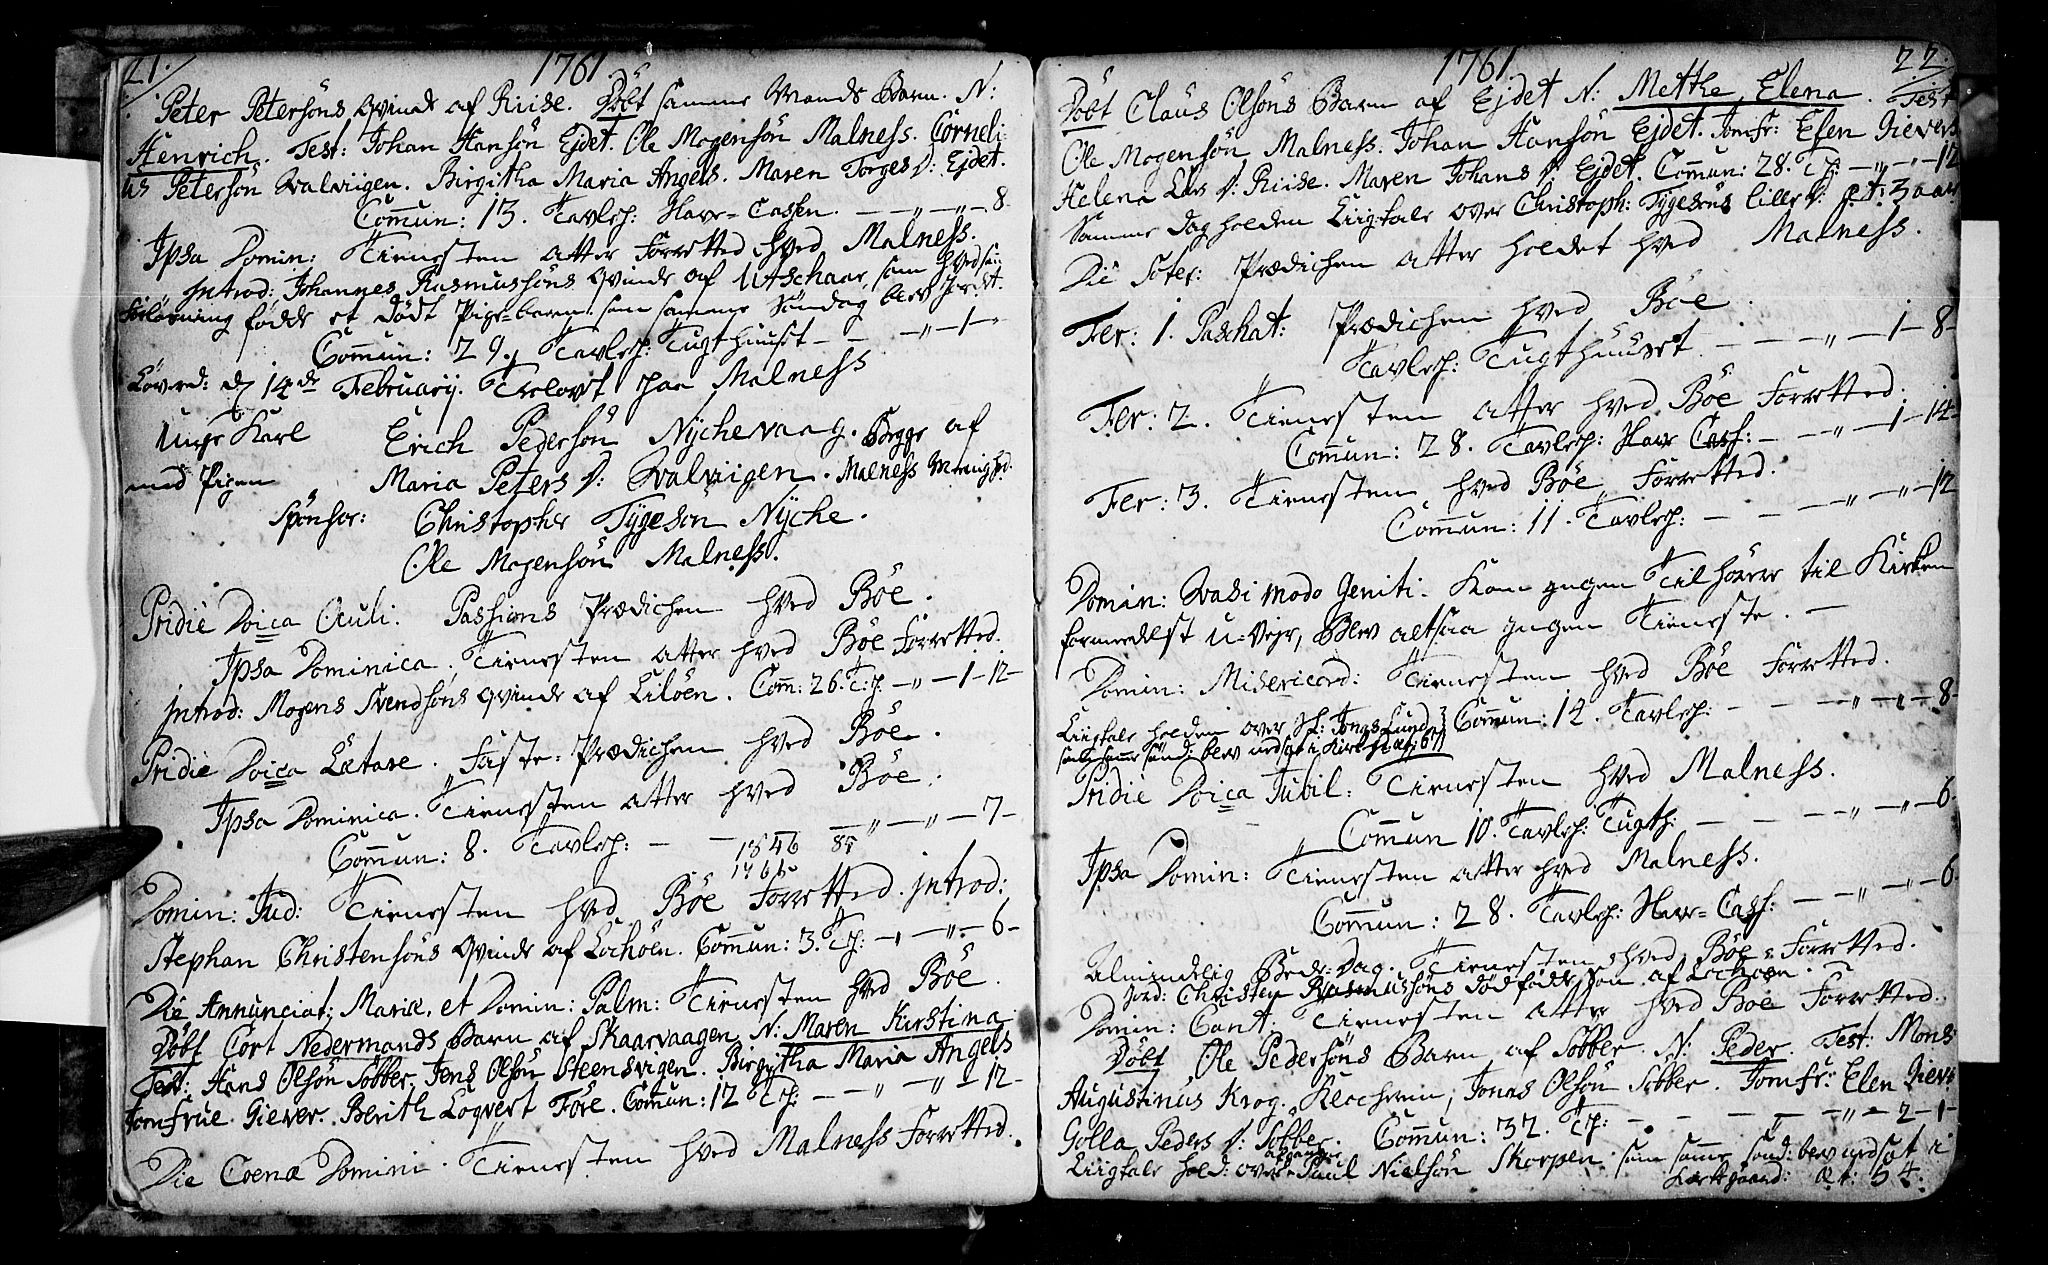 21.
1761
Peter Petersöns Qvinde af Riise. Döbt samme Mands Barn. N:
Henrich. Test: Johan Hansön Ejdet. Ole Mogensön Malness. Corneli-
us Petersön Qvalviigen. Birgitha Maria Angels. Maren Torges D: Ejdet.
Comun: 13. Tavlep: Have-Cassen. — „ — „ — 8.
Ipsa Domin: Tienesten atter forretted hved Malness.
Introd: Johannes Rasmussöns Qvinde af Utschaar, som hved sin
forlösning födde et dödt Pige-barn som samme Söndag blev Jordet.
Comun: 29. Tavlep: Tugthuuset — — „ — 1 — „
Löverd: d 14de February. Trolovt paa Malness
Unge Karl Erich Pedersön Nychevaag. Begge af
med Pigen Maria Peters D: Qvalviigen. Malness Menighed.
Sponsor: Christopher Tygesön Nyche.
Ole Mogensön Malness.
Pridie Doica Oculi. Passions Prædichen hved Böe.
Ipsa Dominica. Tienesten atter hved Böe Forretted.
Introd: Mogens Svendsöns Qvinde af Lilöen. Com: 26. T:p. — „ — 1 — 12 —
Pridie Doica Lætare. Faste-Prædichen hved Böe.
Ipsa Dominica. Tienesten atter hved Böe.
Comun: 8. Tavlep: — — „ — „ — 7 —
1846 85
1761
Domin: Jud: Tienesten hved Böe Forretted. Introd:
Stephan Christensöns Qvinde af Lochöen. Comun: 3. Tp: — „ — „ — 6 —
Die Annunciat: Mariæ, et Domin: Palm: Tienesten hved Böe.
Döbt Cort Nedermands Barn af Skaarvaagen N: Maren Kirstina
Test: Hans Olsön Sobber. Jens Olsön Steensvigen. Birgitha Maria Angels
Jomfrue Giever. Berith Loqvert Före. Comun: 12 Tp: — „ — „ — 12 —
Die Coenæ Domini. Tienesten hved Malness Forretted.
1761
22.
Döbt Claus Olsöns Barn af Ejdet N: Mette Elena. Test
Ole Mogensön Malness. Johan Hansön Ejdet. Jomfr: Elen Giever
Helena Lars D: Riise. Maren Johans D: Ejdet. Comun: 28. Tp: — „ — „ — 12
Samme dag holden Liigtale over Christoph: Tygesöns lille D: æt: 3 aar
Die Soter: Prædichen atter holdet hved Malness.
Fer: 1. Paschat: Prædichen hved Böe.
Tavlep: Tugthuuset. — — — „ — 1 — 8 —
Fer: 2. Tienesten atter hved Böe Forretted.
Comun: 28. Tavlep: Have Cass: — — „ — 1 — 14 —
Fer: 3. Tienesten hved Böe Forretted.
Comun: 11. Tavlep: — — — „ — „ — 12
Domin: Qvasi modo Geniti. Kom ingen Tilhörere til Kirken
formedelst U-Vejr, Blev altsaa ingen Tieneste. —
Domin: Misericord: Tienesten hved Böe Forretted.
Liigtale holden over Sl: Jonas Lund } Comun: 14. Tavlep: — — — „ — „ — 8 —
som samme sönd: blev nedsat i Kirken æt: 67
Pridie Doica Jubil: Tienesten hved Malness.
Comun 10. Tavlep: Tugth: — — — „ — „ — 6 —
Ipsa Domin: Tienesten atter hved Malness.
Comun: 28. Tavlep: Have-Cass: — — „ — „ — 6
Almindelig Bede-Dag. Tienesten hved Böe Forretted.
Jord: Christen Rasmussöns Dödfödde Sön af Lochöen.
Domin: Cant: Tienesten atter hved Böe Forretted.
Döbt Ole Pedersöns Barn af Sobber. N: Peder. Test: Mons:
Augustinus Krog. Klocheren, Jonas Olsön Sobber. Jomfr: Elen Giever
Golla Peders D: Sobber. Comun: 32. Tp: — — — „ — 2 — 1 —
Liigtale hold: over afgangne Paul Nielsön Skorpen som samme sönd: blev nedsat i
Kirkgaard: Æt: 54.